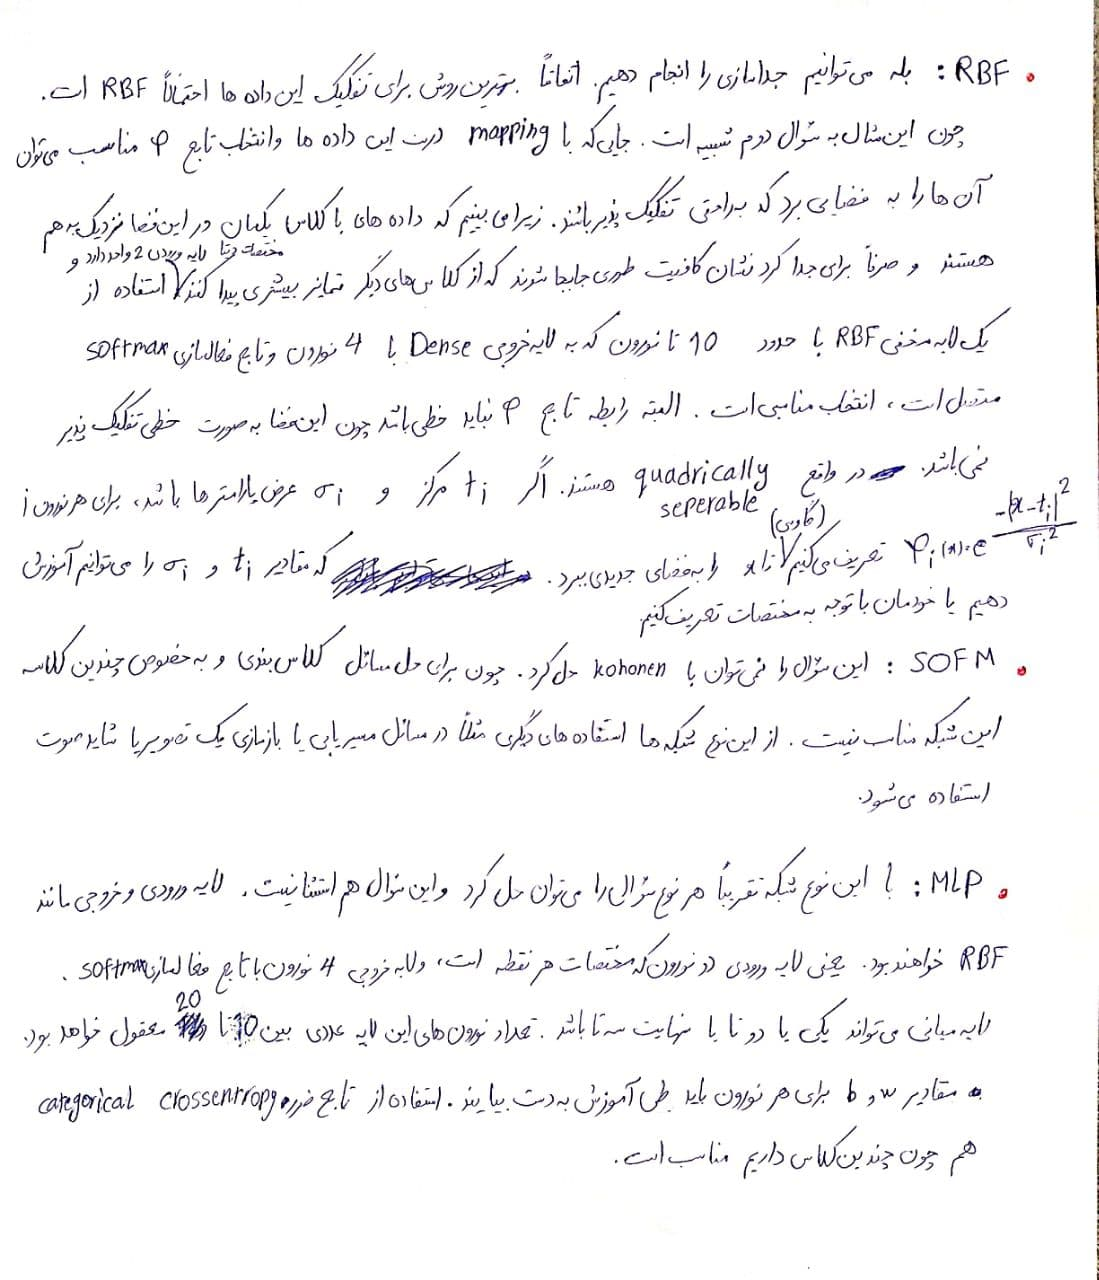 • RBF : بله می‌توانیم جداسازی را انجام دهیم. اتفاقاً بهترین روش برای تفکیک این داده ها احتمالاً RBF است.
چون این مثال به سؤال دوم شبیه است. جایی که با mapping درست این داده ها وانتخاب تابع φ مناسب می‌توان
آن ها را به فضایی برد که به‌راحتی تفکیک پذیر باشند. زیرا می بینیم که داده های با کلاس یکسان در این فضا نزدیک به هم
مختصات لایه ورودی 2 واحد دارد و
هستند و صرفاً برای جدا کرد نشان کافیست طوری جابجا شوند که از کلاس‌های دیگر تمایز بیشتری پیدا کنند استفاده از
یک لایه مخفی RBF با حدود 10 تا نورون که به لایه خروجی Dense با 4 نورون و تابع فعالسازی softmax
متصل است ، انتخاب مناسبی است . البته رابطه تابع φ نباید خطی باشد چون این فضا به صورت خطی تفکیک پذیر
نمی‌باشد. در واقع quadrically seperable هستند. اگر ti مرکز و σi عرض پارامترها باشد، برای هر نورون i
φi(x)=e^(-|x-ti|^2/σi^2) تعریف می‌کنیم (گاوسی) تا x را به فضای جدیدی ببرد. که مقادیر ti و σi را می‌توانیم آموزش
دهیم یا خودمان با توجه به مختصات تعریف کنیم
• SOFM : این سؤال را نمی‌توان با kohonen حل کرد. چون برای حل مسائل کلاس بندی و به خصوص چندین کلاسه
این شبکه مناسب نیست . از این نوع شبکه ها استفاده های دیگری مثلاً در مسائل مسیریابی یا بازسازی یک تصویر یا شاید صوت
استفاده می‌شود.
• MLP : با این نوع شبکه تقریباً هر نوع سؤالی را می‌توان حل کرد و این سؤال هم استثنا نیست . لایه ورودی و خروجی مانند
RBF خواهند بود. یعنی لایه ورودی دو نورون که مختصات هر نقطه است، و لایه خروجی 4 نورون با تابع فعالسازی softmax .
لایه میانی می‌تواند یکی یا دو تا یا نهایت سه تا باشد . تعداد نورون های این لایه عددی بین 10 تا 20 معقول خواهد بود.
مقادیر w و b برای هر نورون باید طی آموزش به دست بیایند . استفاده از تابع ضرر categorical crossentropy
هم چون چندین کلاس داریم مناسب است.